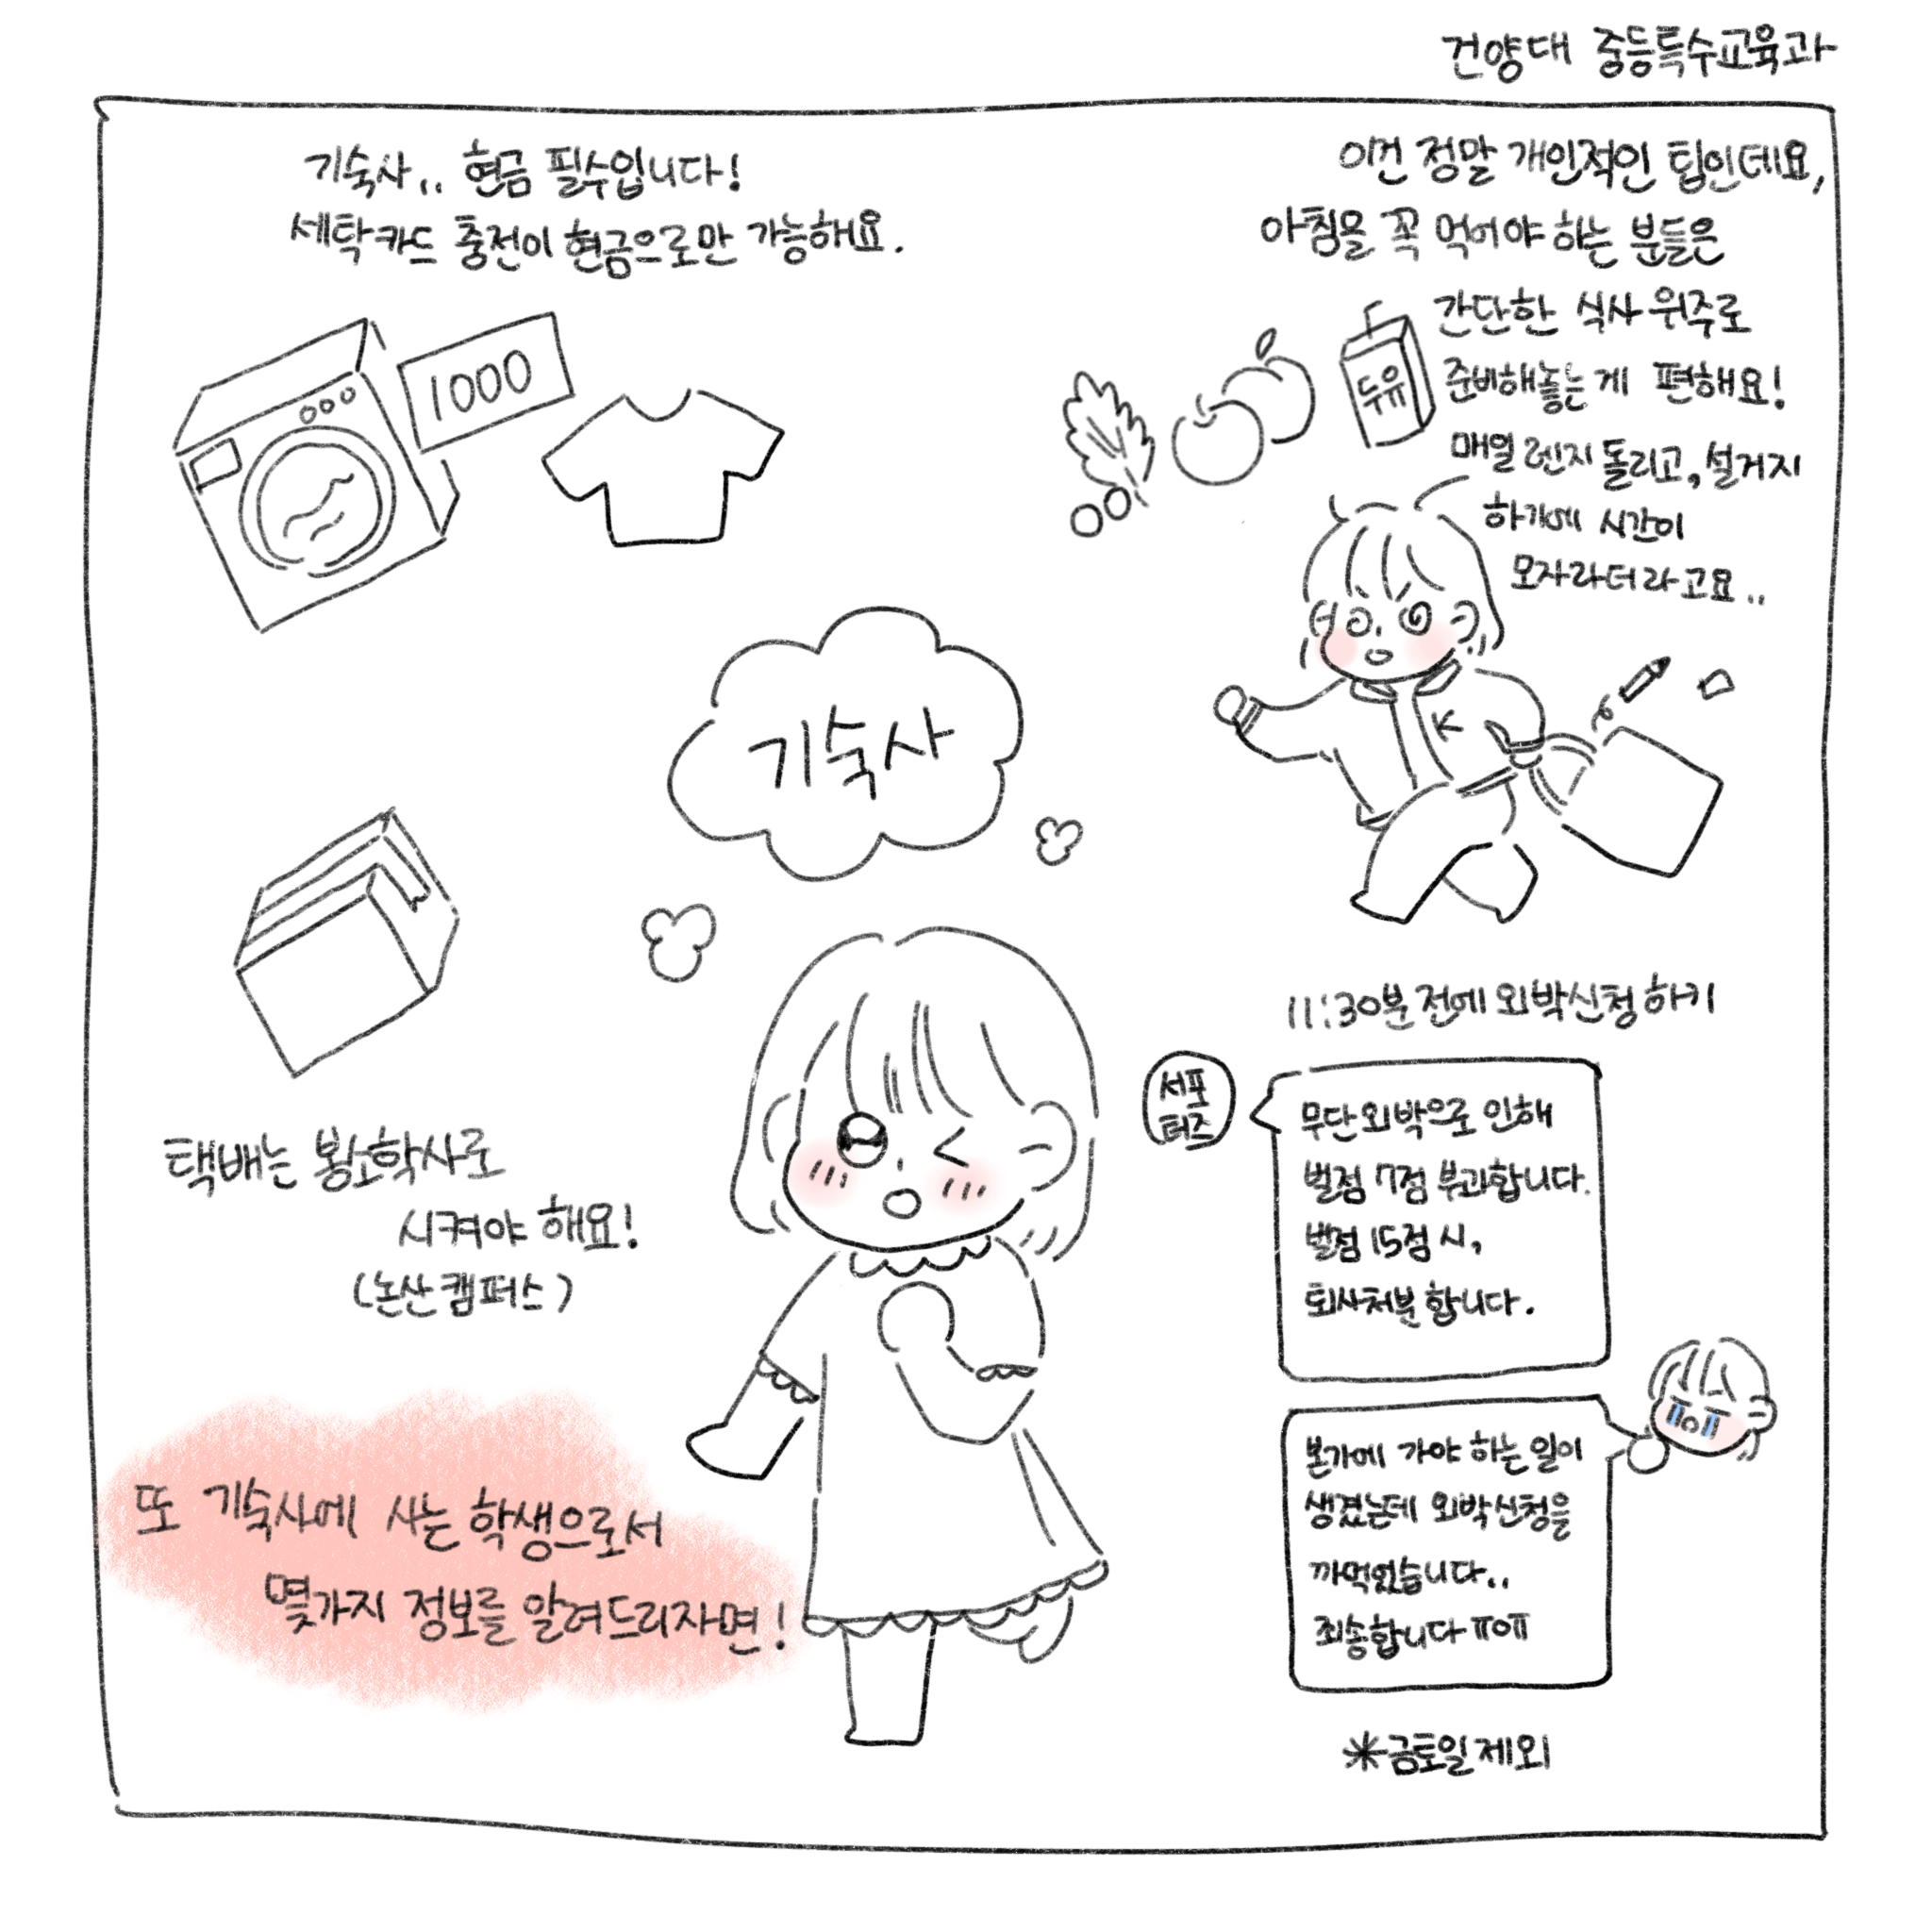 건양대 중등특수교육과
기숙사.. 현금 필수입니다!
세탁카드 충전이 현금으로만 가능해요.
1000
이건 정말 개인적인 팁인데요,
아침을 꼭 먹어야 하는 분들은
간단한 식사 위주로
준비해놓는게 편해요!
매일 렌지 돌리고, 설거지
하기에 시간이
모자라더라고요..
두유
K
기숙사
택배는 봉소학사로
시켜야 해요!
(논산캠퍼스)
11:30분 전에 외박신청하기
서포
터즈
무단외박으로 인해
벌점 7점 부과합니다.
벌점 15점 시,
퇴사처분합니다.
본가에 가야 하는 일이
생겼는데 외박신청을
까먹었습니다..
죄송합니다 ㅠㅇㅠ
*금토일 제외
또 기숙사에 사는 학생으로서
몇가지 정보를 알려드리자면!